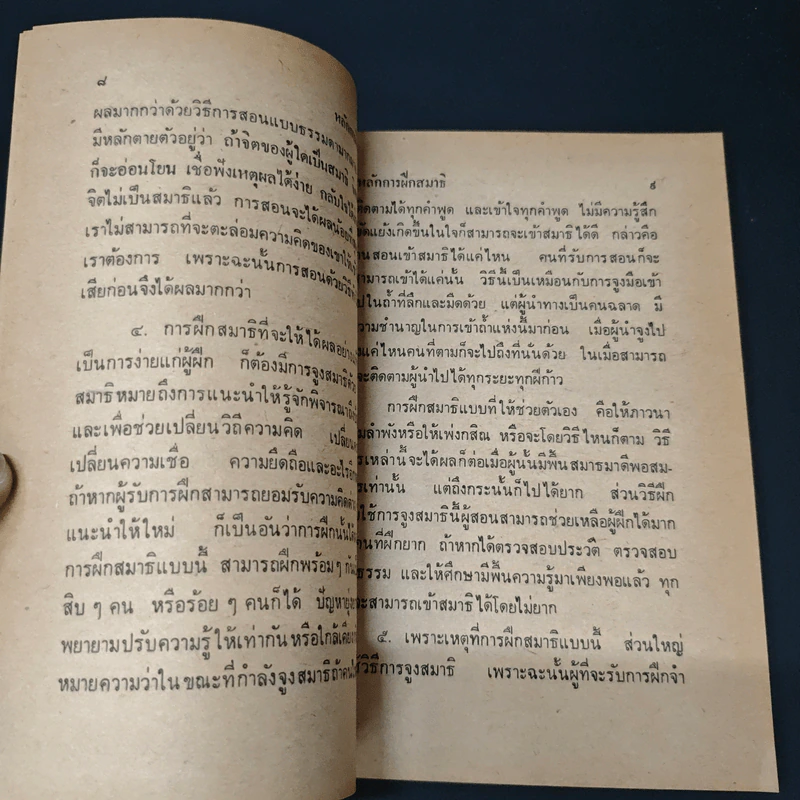 ๘
ผลมากกว่าด้วยวิธีการสอนแบบธรรมดามาก
มีหลักตายตัวอยู่ว่า ถ้าจิตของผู้ใดเป็นสมาธิ
ก็จะอ่อนโยน เชื่อฟังเหตุผลได้ง่าย กลับใจได้
จิตไม่เป็นสมาธิแล้ว การสอนจะได้ผลน้อย
เราไม่สามารถที่จะตะล่อมความคิดของเขาให้
เราต้องการ เพราะฉะนั้นการสอนด้วยวิธี
เสียก่อนจึงได้ผลมากกว่า
๔. การฝึกสมาธิที่จะให้ได้ผลอย่าง
เป็นการง่ายแก่ผู้ฝึก ก็ต้องมีการจูงสมาธิด้วย
สมาธิหมายถึงการแนะนำให้รู้จักพิจารณา
และเพื่อช่วยเปลี่ยนวิถีความคิด
เปลี่ยนความเชื่อ ความยึดถือและอะไร
ถ้าหากผู้รับการฝึกสามารถยอมรับความคิด
แนะนำให้ใหม่ ก็เป็นอันว่าการฝึกนั้น
การฝึกสมาธิแบบนี้ สามารถฝึกพร้อมๆ
สิบๆคน หรือร้อยๆคนก็ได้ ปัญหา
พยายามปรับความรู้ให้เท่ากันหรือใกล้
หมายความว่าในขณะที่กำลังจูงสมาธิ
หลักการฝึกสมาธิ ๙
ติดตามได้ทุกคำพูด และเข้าใจทุกคำพูด ไม่มีความรู้สึก
ขัดแย้งเกิดขึ้นในใจก็สามารถจะเข้าสมาธิได้ดี กล่าวคือ
สอนเข้าสมาธิได้แค่ไหน คนที่รับการสอนก็จะ
สามารถเข้าได้แค่นั้น วิธีนี้เป็นเหมือนกับการจูงมือเข้า
ไปในถ้ำที่ลึกและมืดด้วย แต่ผู้นำทางเป็นคนฉลาด มี
ความชำนาญในการเข้าถ้ำแห่งนี้มาก่อน เมื่อผู้นำจูงไป
แค่ไหนคนที่ตามก็จะไปถึงที่นั่นด้วย ในเมื่อสามารถ
จะติดตามผู้นำไปได้ทุกระยะทุกฝีก้าว
การฝึกสมาธิแบบที่ให้ช่วยตัวเอง คือให้ภาวนา
ลำพังหรือให้เพ่งกสิณ หรือจะโดยวิธีไหนก็ตาม วิธี
เหล่านี้จะได้ผลก็ต่อเมื่อผู้นั้นมีพื้นสมาธมาดีพอสม-
เท่านั้น แต่ถึงกระนั้นก็ไปได้ยาก ส่วนวิธีฝึก
ใช้การจูงสมาธินี้ผู้สอนสามารถช่วยเหลือผู้ฝึกได้มาก
คนที่ฝึกยาก ถ้าหากได้ตรวจสอบประวัติ ตรวจสอบ
ธรรม และให้ศึกษามีพื้นความรู้มาเพียงพอแล้ว ทุก
จะสามารถเข้าสมาธิได้โดยไม่ยาก
๕. เพราะเหตุที่การฝึกสมาธิแบบนี้ ส่วนใหญ่
ใช้วิธีการจูงสมาธิ เพราะฉะนั้นผู้ที่จะรับการฝึกจำ